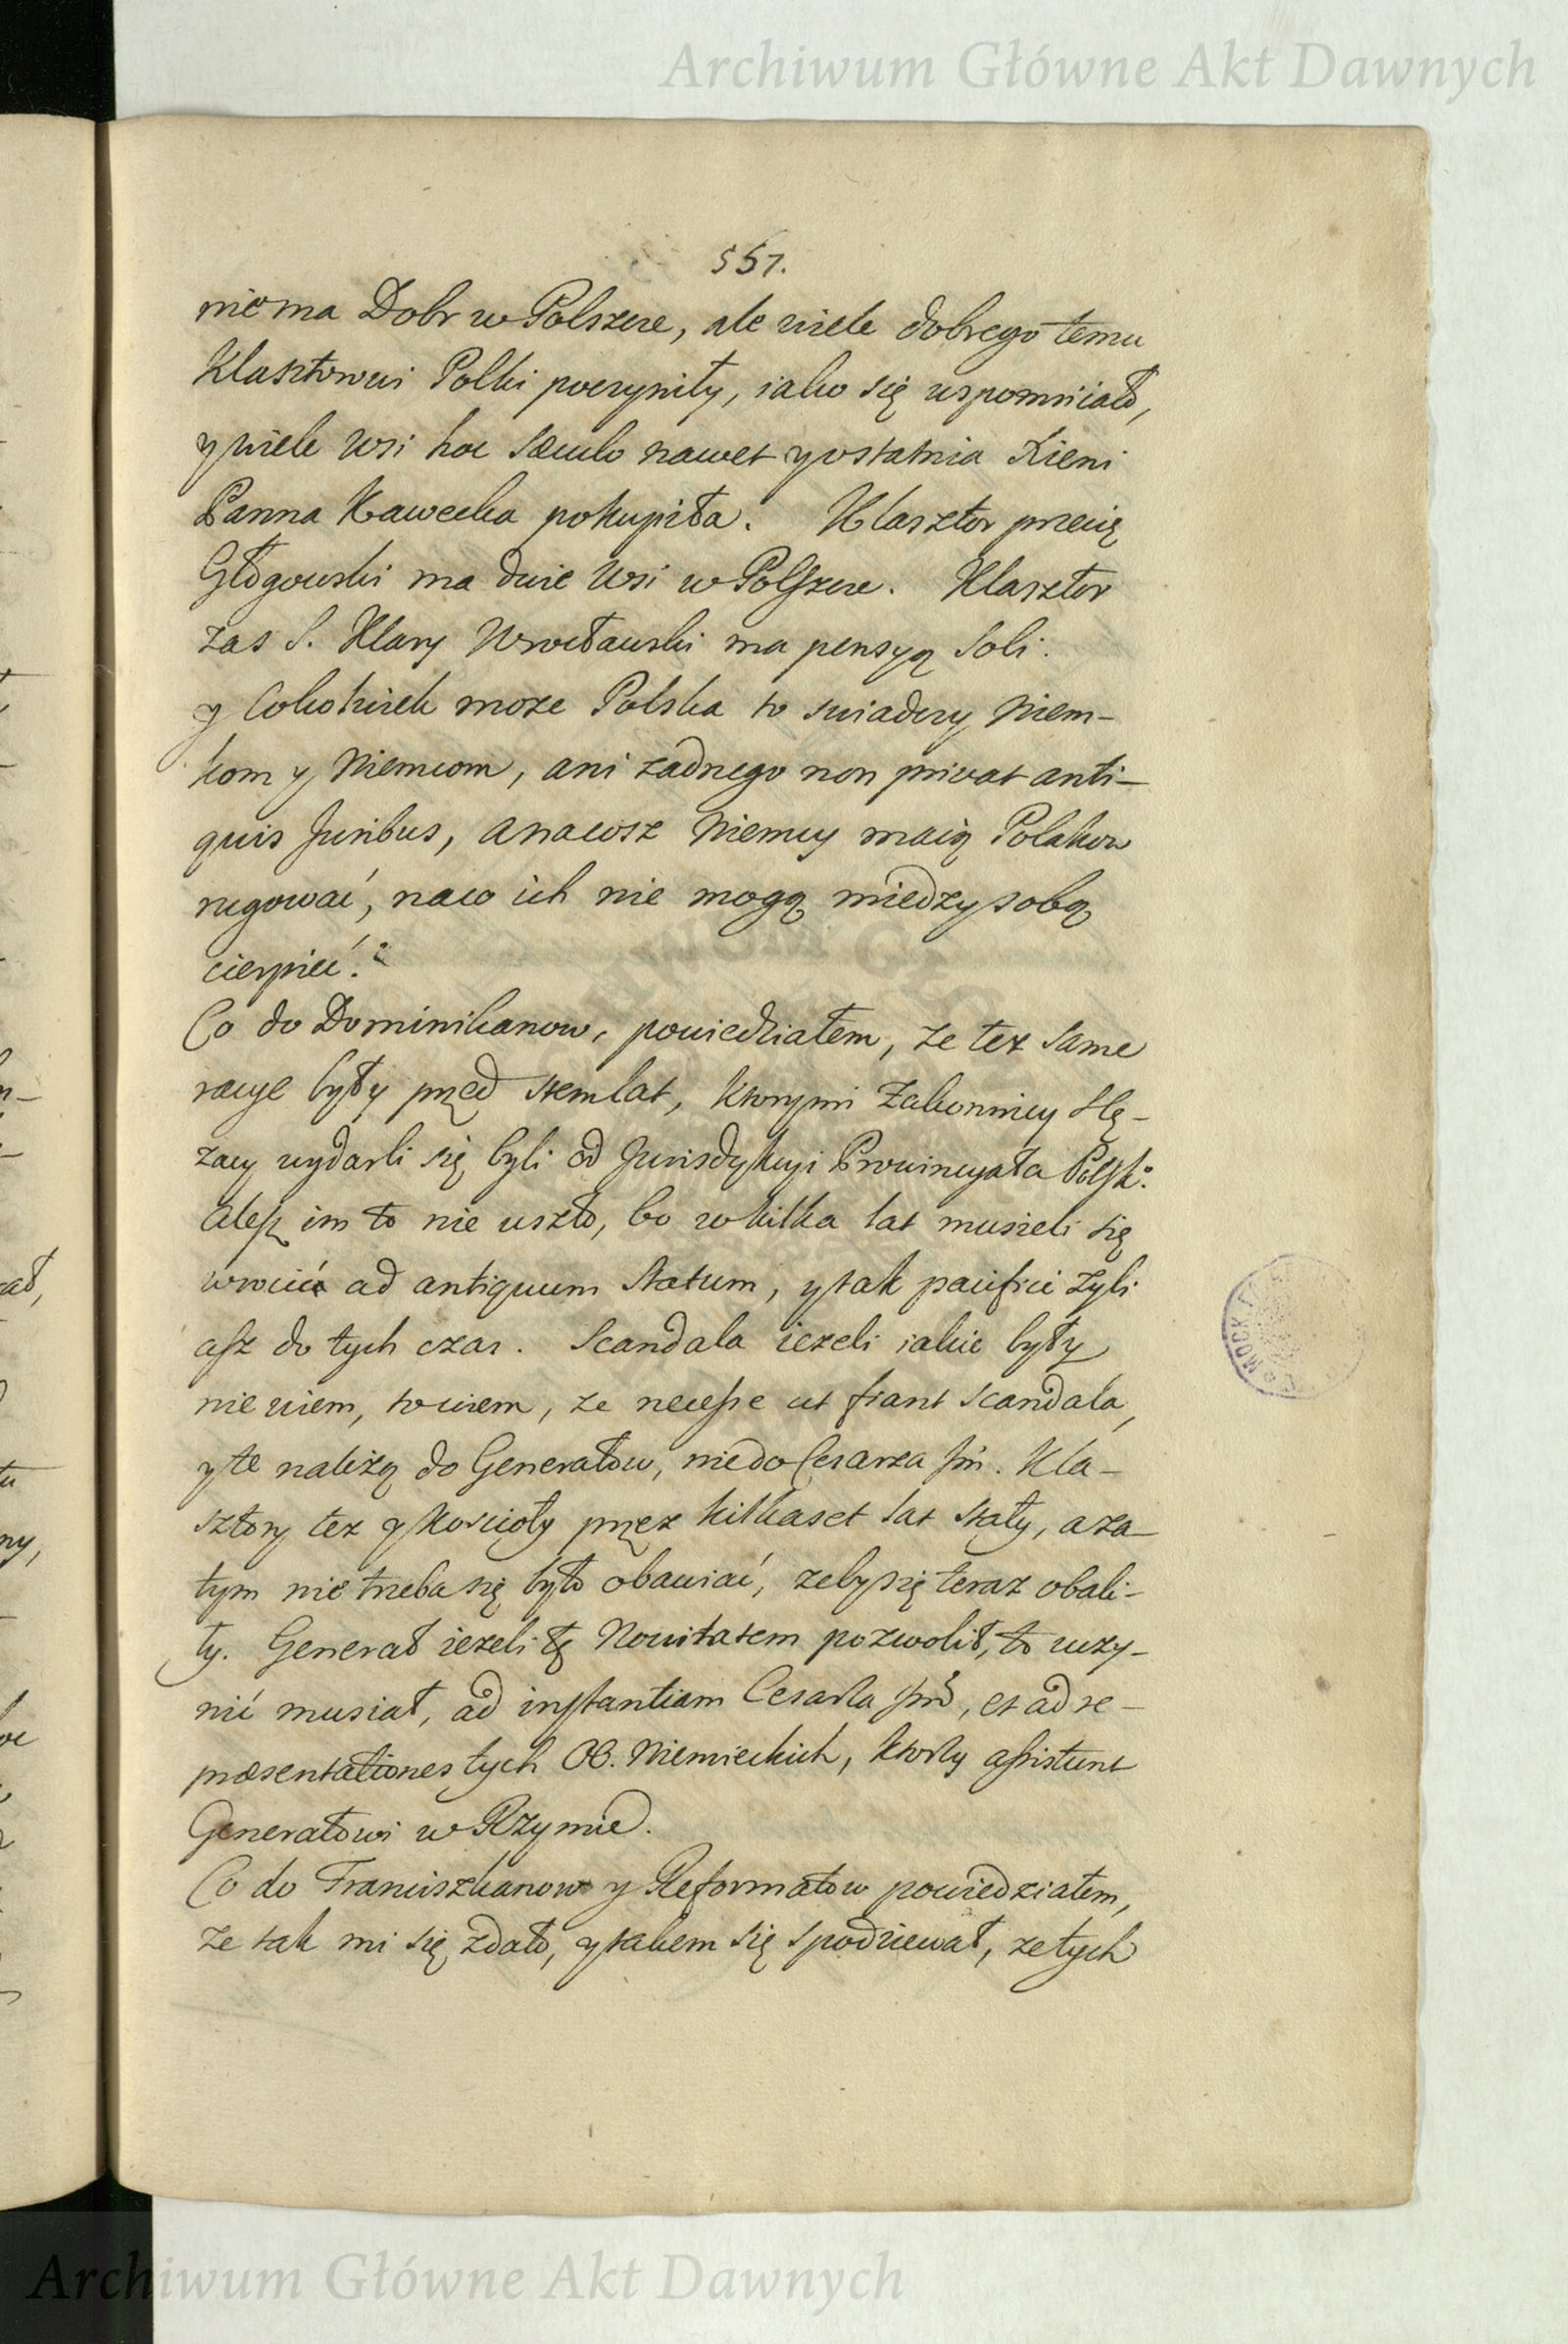 Archiwum Główne Akt Dawnych
557.
nie ma Dobr w Polszcze, ale wiele dobrego temu
Klasztorowi Polki poczyniły, iako się wspomniało,
y wiele wsi hoc sæculo nawet y ostatnia Xieni
Panna Kawecka pokupiła. Klasztor przecię
Głogowski ma dwie wsi w Polszcze. Klasztor
zas S. Klary Wrocławski ma pensyą Soli.
y Cokolwiek moze Polska to swiadczy Niem-
kom y Niemcom, ani zadnego non privat anti-
quis Juribus, a nacosz Niemcy maią Polakow
rugować, naco ich nie mogą miedzy sobą
cierpieć?
Co do Dominikanow, powiedziałem, ze tez same
racye były przed stem lat, ktorymi Zakonnicy Slę-
zacy wydarli się byli od Jurisdykcyi Prowincyała Polsk:
Alesz im to nie uszło, bo w kilka lat musieli się
wrocić ad antiquum Statum, y tak pacifice zyli
asz do tych czas. Scandala iezeli iakie były
nie wiem, to wiem, ze necesse ut fiant scandala,
y te należą do Generałow, nie do Cesarza Jm. Kla-
sztory tez y Koscioły przez kilkaset lat stały, a za-
tym nie trzeba się było obawiać, zeby się teraz obali-
ły. Generał iezeli tę Novitatem pozwolił, to uczy-
nić musiał, ad instantiam Cesarza Jmć, et ad re-
præsentationes tych OO. Niemieckich, ktorzy assistunt
Generałowi w Rzymie.
Co do Franciszkanow y Reformatow powiedziałem,
ze tak mi się zdało, y takem się spodziewał, ze tych
Archiwum Główne Akt Dawnych